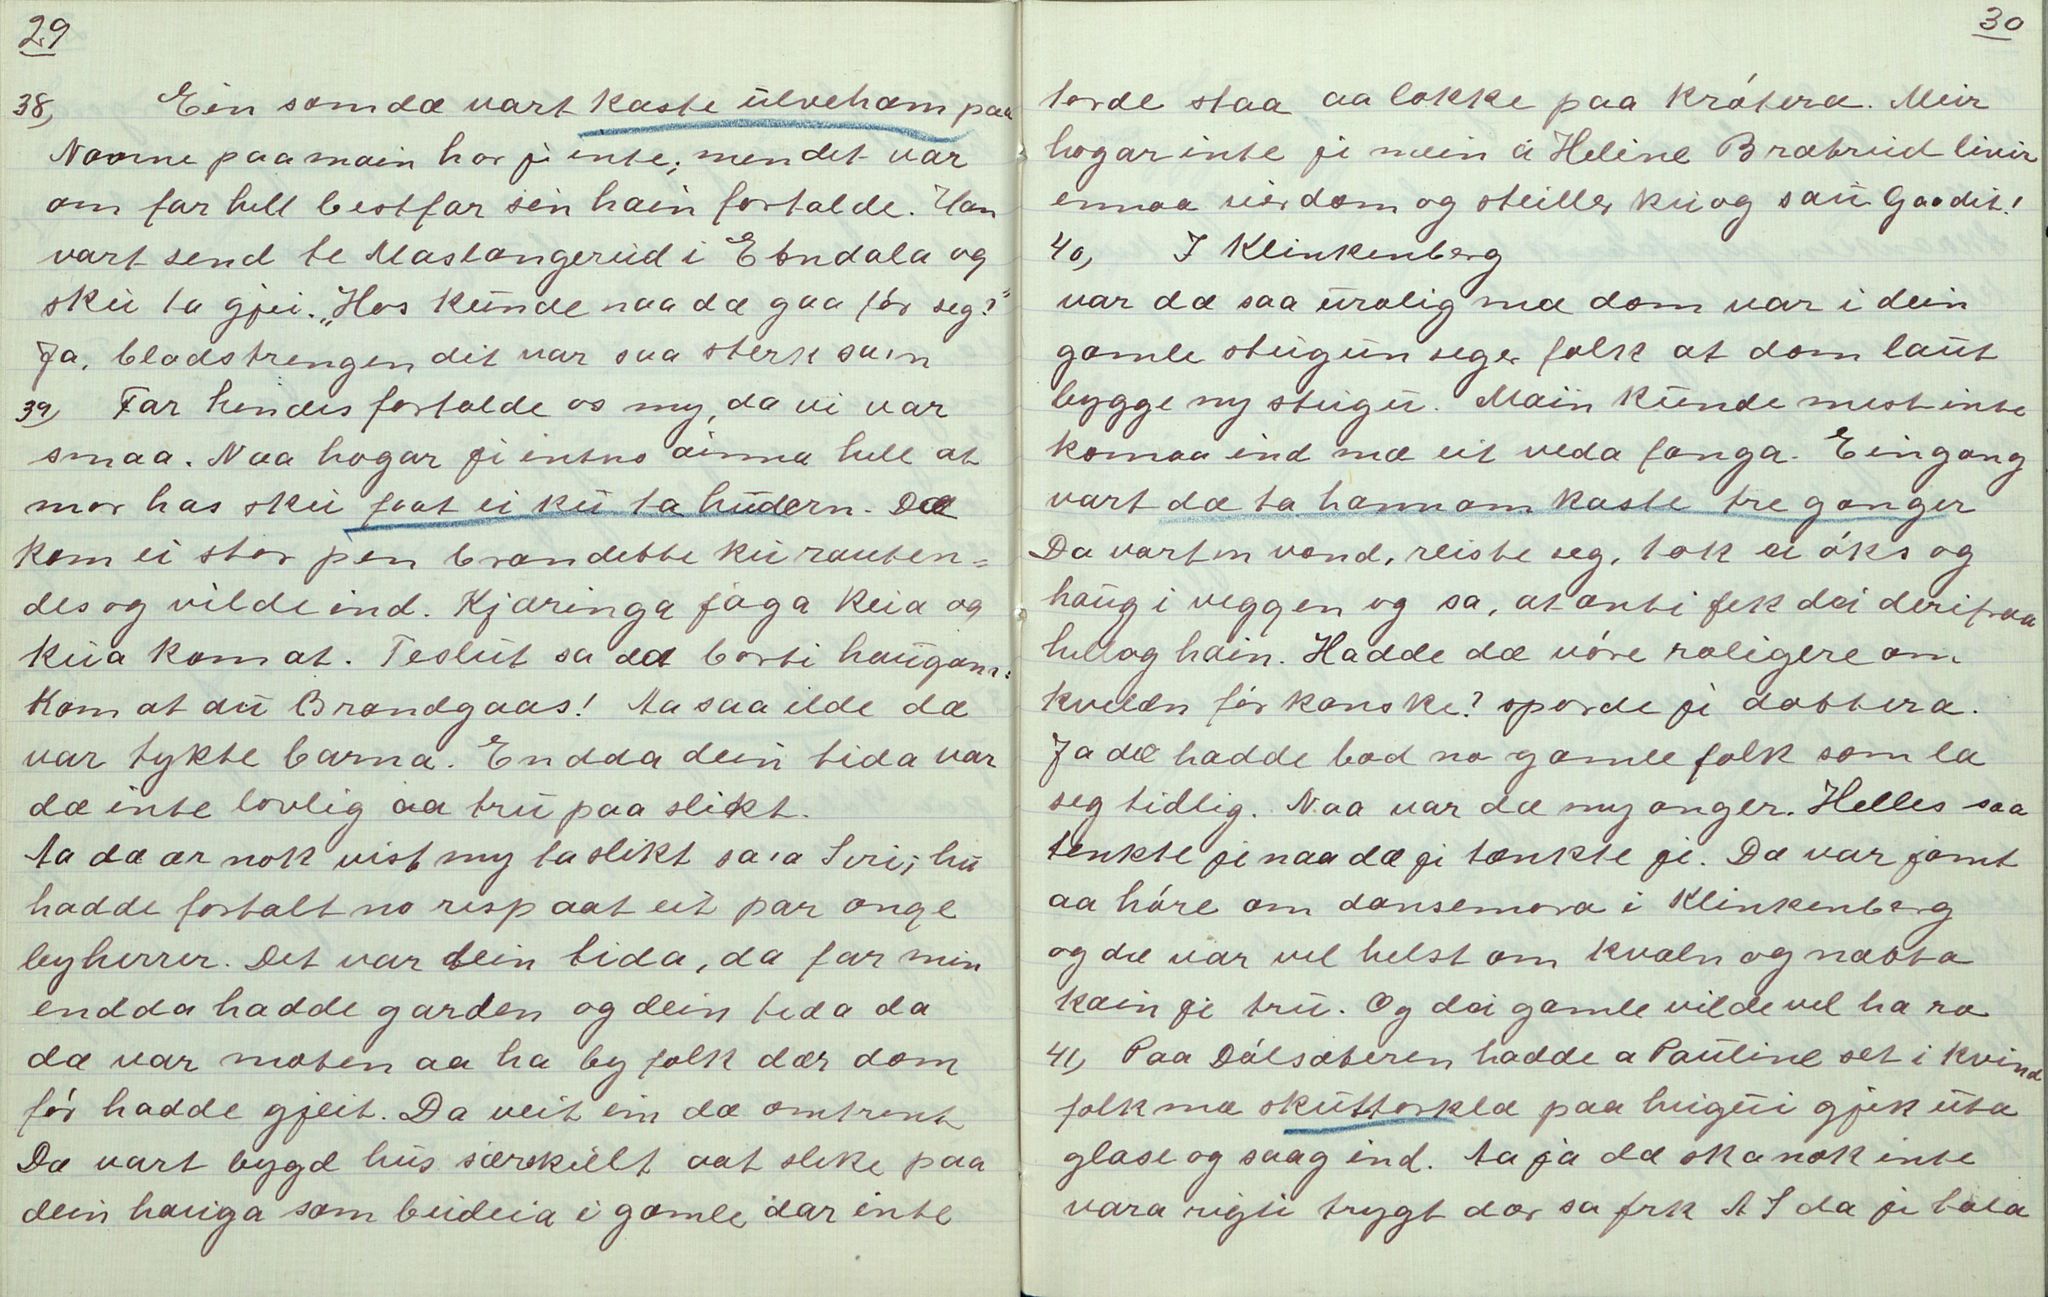 29
38, Ein som dæ vart kaste ulveham paa
Navne paa main har ji inte; men det var
om far hell bestfar sin hain fortalde. Han
vart send te Maslangerud i Ebndala og
sku ta gjei. „Hos kunde naa dæ gaa før seg?"
Ja, blodstrengen dit var saa sterk sa'n
39, Far hendes fortalde os my, da vi var
smaa. Naa hogar ji intno ainna hell at
mor has sku faat ei ku ta hudern. Dæ
kom ei stor pen brandette ku rauten=
des og vilde ind. Kjæringa jaga keia og
kua kom at. Teslut sa dæ borti haugom:
Kom at au Brandgaas! Aa saa ilde dæ
var tykte barna. Endda dein tida var
dæ inte lovlig aa tru paa slikt.
Aa dæ ær nok vist my ta slikt sa'a Siri; hu
hadde fortalt no resp aat eit par onge
byherrer. Det var dein tida, da far min
endda hadde garden og dein tida da
dæ var moten aa ha byfolk dær dom
før hadde gjeit. Da veit ein dæ omtrent
Dæ vart bygd hus særskilt aat slike paa
dein hauga som budeia i gamle dar inte
30
torde staa aa lokke paa krøtera. Meir
hogar inte ji mein a Heline Brabrud livir
ennaa uier dom og steiller ku og sau Gaa dit!
40, I Klinkenberg
var dæ saa urolig mæ dom var i dein
gamle stugun seger folk at dom laut
bygge ny stugu. Main kunde mest inte
komaa ind mæ eit veda fanga. Ein gang
vart dæ ta hannom kaste tre ganger
Da vart'n vond, reiste seg, tok ei øks og
haug i veggen og sa, at anti fek dei derifraa
hell og hain. Hadde dæ vøre roligere om
kveldn før kanske? sporde ji dottera.
Ja dæ hadde bod no gamle folk som la
seg tidlig. Naa var dæ my onger. Helles saa
tenkte ji naa dæ ji tænkte ji. Dæ var jamt
aa høre om dansemora i Klinkenberg
og dæ var vel helst om kvæln og natta
kain ji tru. Og dei gamle vilde vel ha ro
41, Paa Dølsæteren hadde a Pauline set i kvind
folk mæ skuttorklæ paa huigu i gjek uta
glase og saag ind. Aa ja dæ ska nok inte
vara rigti trygt dær sa frk A S da ji tala